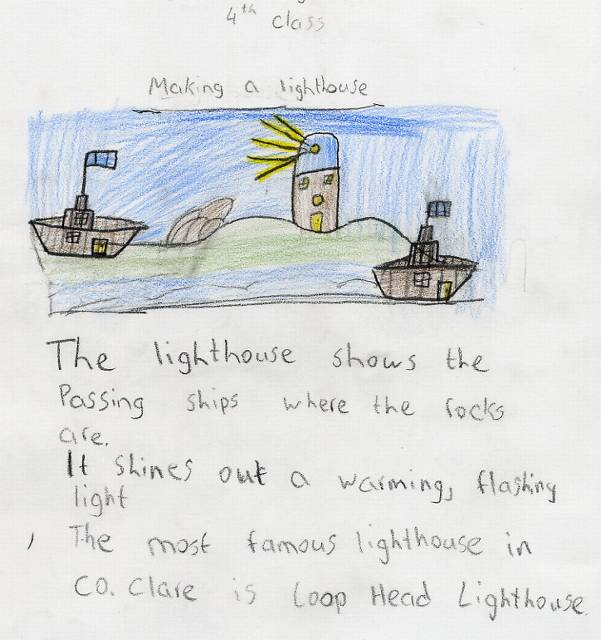 4th class
Making a lighthouse
The lighthouse shows the
Passing ships where the rocks
are.
It shines out a warming, flashing
light
, The most famous lighthouse in
CO. Clare is Loop Head Lighthouse.